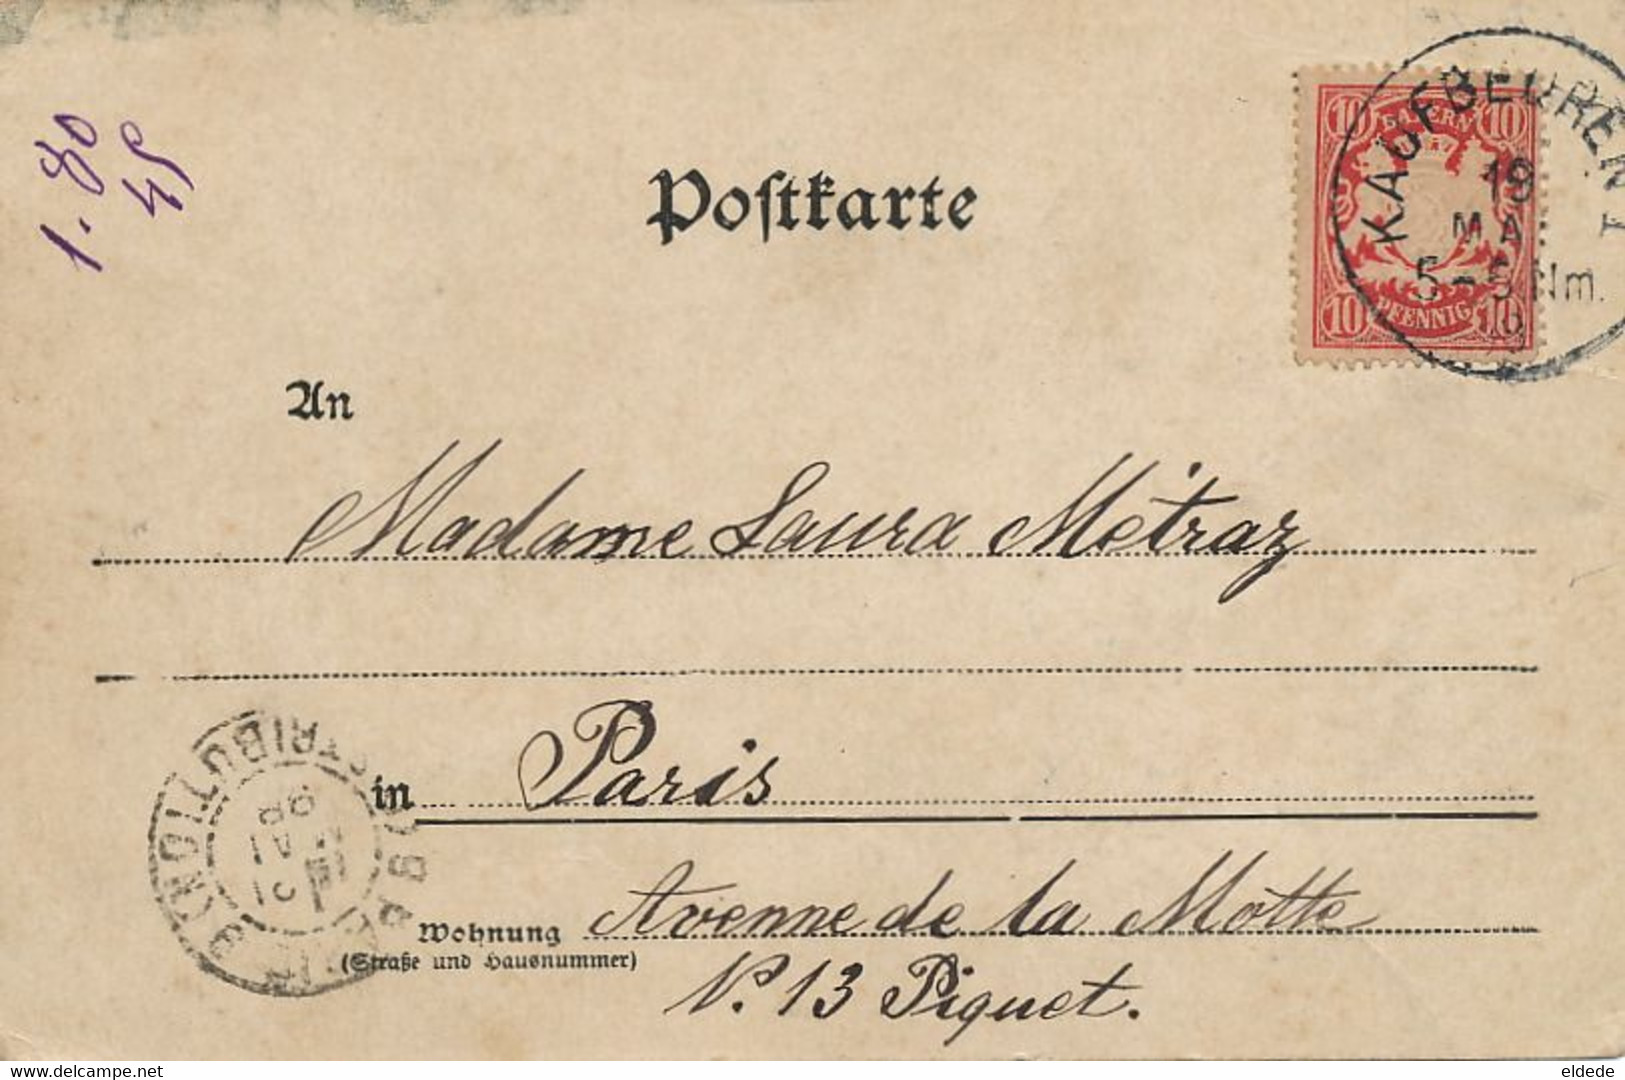 1.80
45
Postkarte
10 BAYERN 10
10 PFENNIG 10
KAUFBEUREN I
19
MA
5-6 Nm.
An
Madame Laura Métraz
in Paris
DISTRIBUTION
PARIS
MAI
Wohnung Avenue de la Motte
(Straße und Hausnummer)
N.º 13 Piquet.
www.delcampe.net
eldede